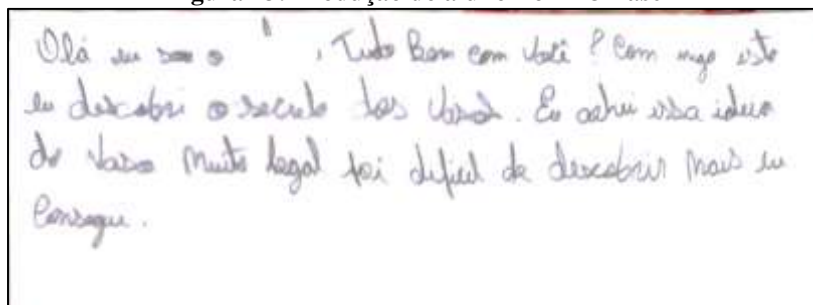 Olá eu sou o , Tudo Bem com você ? Com migo este
eu descobri o seculo dos Vasos. Eu achei essa ideia
do Vaso Muito legal foi dificil de descobrir Mais eu
Consegui.